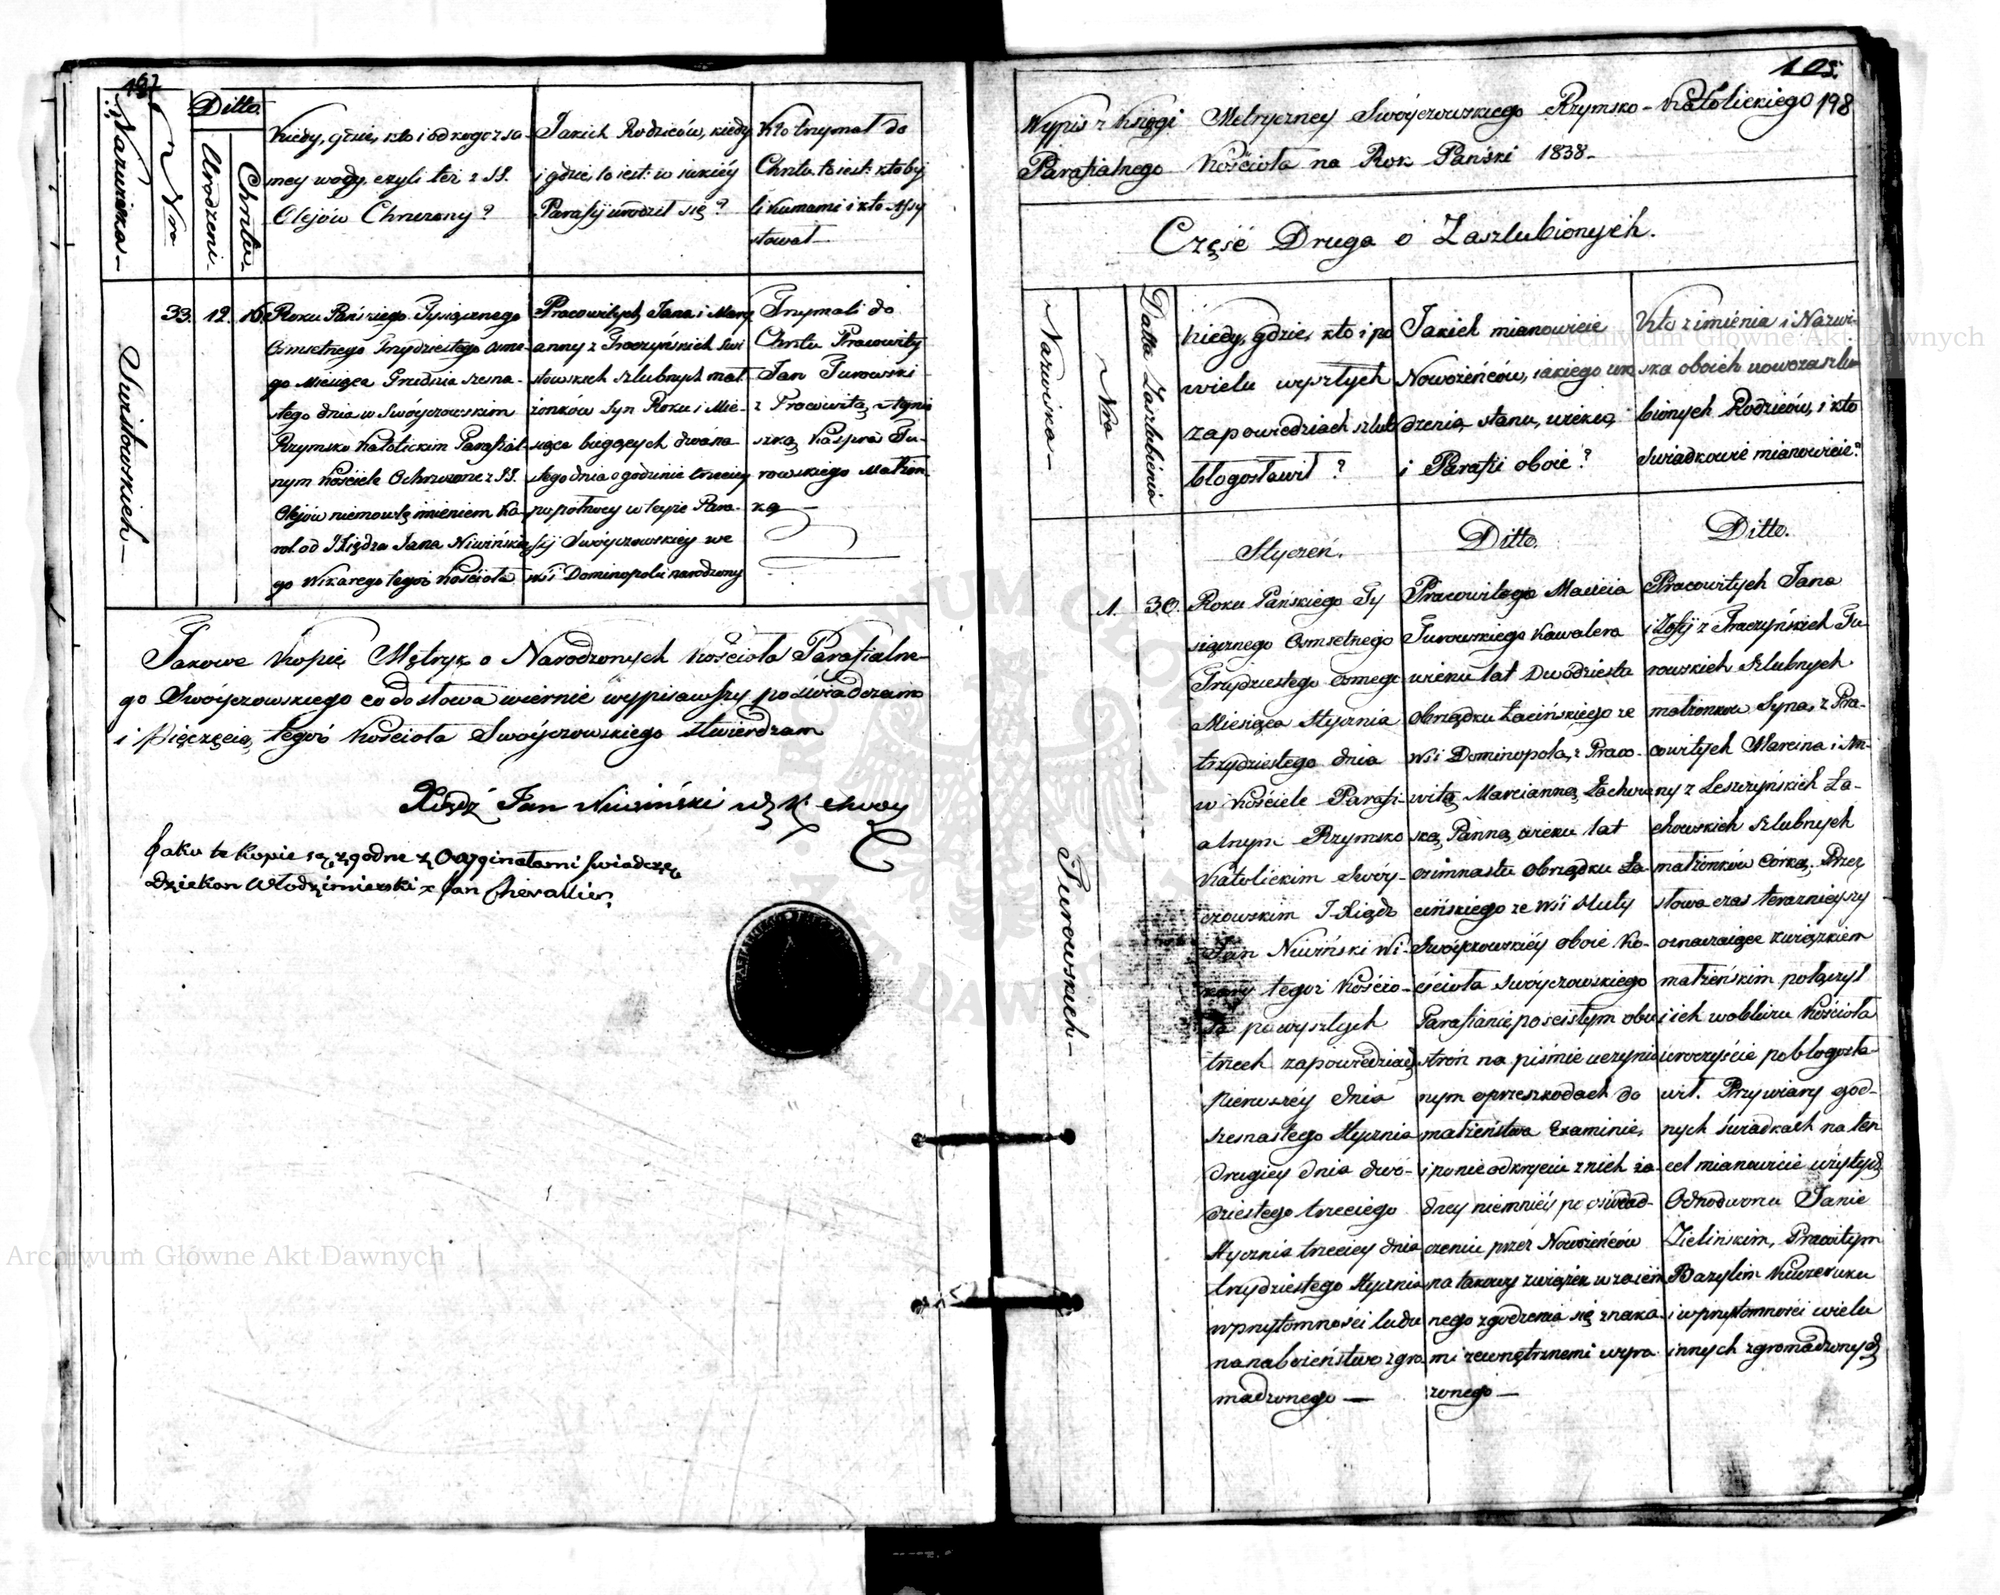 197
Nazwiska
Nro
Ditto.
Urodzeni
Chrztu
Kiedy, gdzie, kto i od kogo z sa
mey wody, czyli też z SS.
Olejów Chrzczony?
Jakich Rodziców, kiedy
i gdzie, to iest: w iakiéy
Parafij urodził się?
Kto trzymał do
Chrztu to iest: kto by
li kumami i kto Assy
stował
Swistowskich
33. 12. 16.
Roku Pańskiego Tysiącznego
Osmsetnego Trzydziestego osme-
go Miesiąca Grudnia szesna-
stego dnia w Swóyczowskim
Rzymsko Katolickim Parafial-
nym Kościele Ochrzczone z SS.
Olejów niemowlę imieniem Ka-
rol od JXiędza Jana Niwińskie-
go Wikarego tegoż Kościoła
Pracowitych Jana i Mary
anny z Traczyńskich Swi
stowskich Szlubnych mał-
żonków Syn Roku i Mie-
siąca bieżących dwuna-
stego dnia o godzinie trzeciey
po północy w teyże Para-
fij Swóyczowskiey we
wsi Dominopolu narodzony
Trzymali do
Chrztu Pracowity
Jan Turowski
z Pracowitą Agnie
szką Kaspra Tu-
rowskiego Małżon-
ką
Jakowe Kopię Mętryk o Narodzonych Kościoła Parafialne-
go Swóyczowskiego co do słowa wiernie wypisawszy poświadczam
i Pięczęcią tegoż Kościoła Swóyczowskiego stwierdzam
Xiądz Jan Niwiński
Jako te Kopie są zgodne z Oryginałami świadczę
Dziekan Włodzimierski x Jan Chevallier
105.
198
Wypis z Księgi Metryczney Swóyczowskiego Rzymsko-Katolickiego
Parafialnego Kościoła na Rok Pański 1838.
Część Druga o Zaszlubionych.
Nazwiska
Nro
Datta Zaszlubienia
Kiedy, gdzie, kto i po
wielu wyszłych
zapowiedziach szlub
błogosławił?
Jakich mianowicie
Nowożeńców, iakiego uro
dzenia, stanu, wieku,
i Parafii oboie?
Kto z imienia i Nazwi-
ska oboich nowozaszlu
bionych Rodziców, i kto
Swiadkowie mianowicie?
Turowskich
Styczeń.
1. 30.
Roku Pańskiego Ty
siącznego Osmsetnego
Trzydziestego osmego
Miesiąca Stycznia
trzydziestego dnia
w Kościele Parafi-
alnym Rzymsko
Katolickim Swóy-
czowskim J Xiądz
Jan Niwiński Wi-
kary tegoż Kościo-
ła po wyszłych
trzech zapowiedziach
pierwszéy dnia
szesnastego Stycznia
drugiey dnia dwu-
dziestego trzeciego
Stycznia trzeciey dnia
trzydziestego Stycznia
w przytomności ludu
na nabożeństwo zgro
madzonego
Ditto.
Pracowitego Macieia
Turowskiego Kawalera
wieku lat Dwudziestu
obrządku Łacińskiego ze
wsi Dominopola, z Praco-
witą Marcianną Lachow
ską, Panną, wieku lat
ośmnastu obrządku Ła-
cińskiego ze Wsi
Swóyczowskiéy oboie Ko-
ścioła Swóyczowskiego
Parafianie po scisłym obu
strón na piśmie uczynio
nym o przeszkodach do
małżeństwa Examinie,
i po nie odkryciu z nich ża
dney niemniéy po oświad-
czeniu przez Nowożeńców
na takowy związek wzaiem
nego zgodzenia się znaka
mi zewnętrznemi wyra
żonego
Ditto.
Pracowitych Jana
i Zofij z Traczyńskich Tu-
rowskich Szlubnych
małżonków Syna, z Pra-
cowitych Marcina i An-
ny z Leszczyńskich La-
chowskich Szlubnych
małżonków Córką, Przez
słowa czas teraznieyszy
oznaczaiące związkiem
małżeńskim połączył
i ich wobliczu Kościoła
uroczyście pobłogosła-
wił. Przy wiary god-
nych świadkach na ten
cel mianowicie użytych
Odnodworcu Janie
Zielinskim, Pracowitym
Bazylim
i w przytomności wielu
innych zgromadzonych
Archiwum Główne Akt Dawnych
Archiwum Główne Akt Dawnych